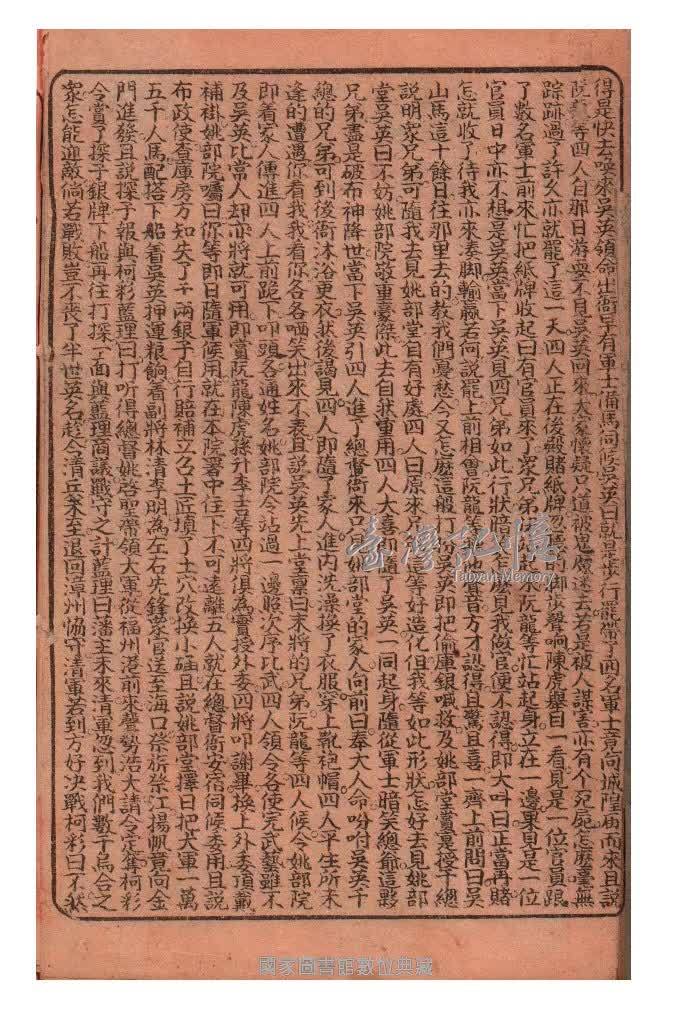 得是快去喚來吳英領命出衙早有軍士備馬伺候吳英曰就是步行罷帶了四名軍士竟向城隍庙而來且說
院龍等四人自那日游耍不見吳英回來大家懷疑只道被鬼魔迷去若是被人謀害亦有个死屍怎麽毫無
踪跡過了許久亦就罷了這一天四人正在後殿賭紙牌忽聽的脚步聲响陳虎舉目一看見是一位官員跟
了數名軍士前來忙把紙牌收起曰有官員來了眾兄弟快起來阮龍等忙站起身立在一邊果見是一位
官員日中亦不想是吳英當下吳英見四兄弟如此行狀暗怎麽見我做官便不認得即大叫曰正當再賭
怎就收了待我亦來凑脚輸贏若何說罷上前相會阮龍等聽他聲音方才認得且驚且喜一齊上前問曰吳
山馬這十餘日往那里去的教我們憂愁今又怎麽這般打扮吳英即把偷庫銀喊救及姚部堂賞識授千總
說明眾兄弟可隨我去見姚部堂自有好處四人曰原來兄弟這等好造化但我等如此形狀怎好去見姚部
堂吳英曰不妨姚部院敬重豪傑此去自然重用四人大喜即隨了吳英一同起身隨從軍士暗笑總爺這夥
兄弟盡是破布神降世當下吳英引四人進了總督衙來只見姚部堂的家人向前曰奉大人命吩咐吳英千
總的兄弟可到後衙沐浴更衣然後謁見四人即隨了家人進内洗澡換了衣服穿上靴袍帽四人平生所未
逢的遭遇你看我我看你各各哂笑出來不表且說吳英先上堂禀曰末將的兄弟阮龍等四人候令姚部院
即着家人傳進四人上前跪下叩頭各通姓名姚部院令站過一邊照次序比武四人領令各使完武藝雖不
及吳英比常人却亦將就可用即賞阮龍陳虎孫升李吉等四將俱為實授外委四將叩謝畢換上外委頂戴
補掛姚部院囑曰你等即日隨軍候用就在本院署中住下不可遠離五人就在總督衙安宿伺候委用且說
布政使查庫房方知失了千兩銀子自行賠補立召土匠填了土穴改換小砫且說姚部堂擇日把大軍一萬
五千人馬配搭下船着吳英押運粮餉着副將林清李明為左右先鋒衆官送至海口祭旂祭江揚帆竟向金
門進發且說探子報與柯彩藍理曰打听得總督姚啓聖帶領大軍從福州港前來聲勢浩大請令定奪柯彩
令賞了探子銀牌下船再往打探一面與藍理商議戰守之計藍理曰藩主未來清軍忽到我們數千烏合之
衆怎能迎敵倘若戰敗豈不喪了半世英名趁今清兵未至退回漳州協守清軍若到方好决戰柯彩曰不然
臺灣記憶
Taiwan Memory
國家圖書館數位典藏